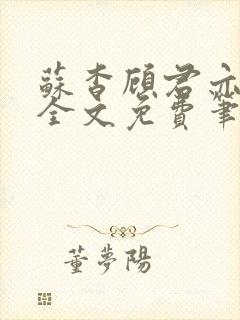 蘇杳顧君亦
全文免費筆
董夢陽